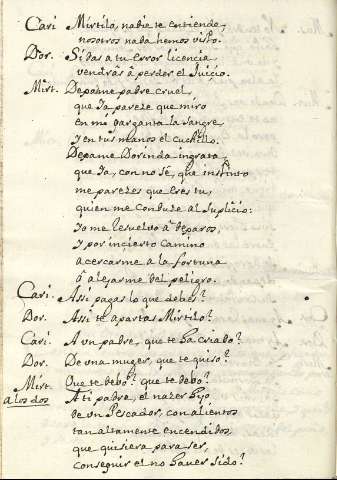 Cari Mirtilo, nadie te entiende,
nosotros nada hemos visto.
Dor. Si das a tu error licencia,
vendrás à perder el Juicio.
Mirt. Dejame padre cruel,
que Ja pareze que miro
en mi garganta la sangre,
y en tus manos el cuchillo.
Dejame Dorinda ingrata,
que Ja, con no sè, que instinto
me parezes que eres tu,
quien me conduze al suplicio:
Jo me resuelvo a dejaros,
y por incierto camino
acercarme a la fortuna
ô alejarme del peligro.
Cari. Assi pagas lo que debes?
Dor. Assi te apartas Mirtilo?
Cari. A un padre, que te ha criado?
Dor. De una muger, que te quiso?
Mirt. Que te debo? que te debo?
a los dos A ti padre, el nazer hijo
de un Pescador, con alientos
tan altamente encendidos
que quisiera para ser,
conseguir el no haver sido?